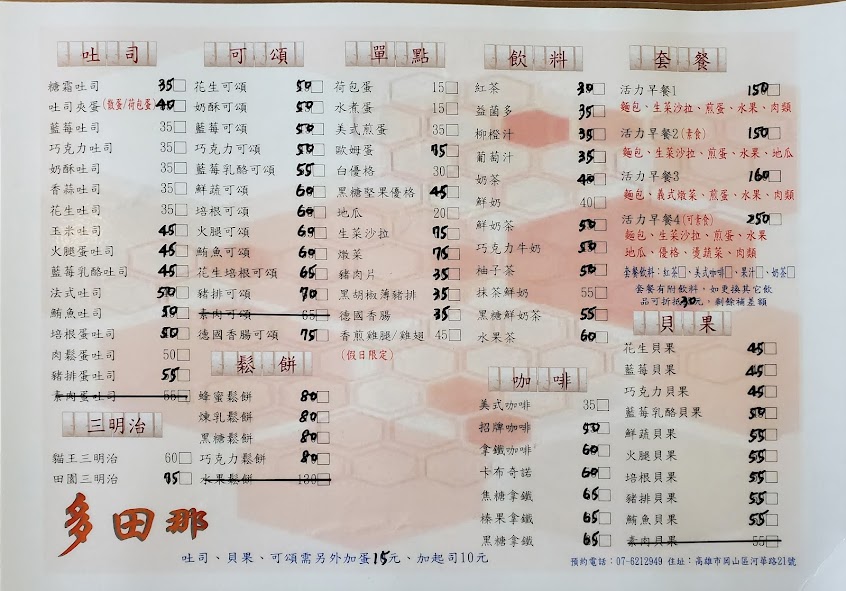 吐司
糖霜吐司 35
吐司夾蛋(散蛋/荷包蛋) 40
藍莓吐司 35
巧克力吐司 35
奶酥吐司 35
香蒜吐司 35
花生吐司 35
玉米吐司 45
火腿蛋吐司 45
藍莓乳酪吐司 45
法式吐司 50
鮪魚吐司 50
培根蛋吐司 50
肉鬆蛋吐司 50
豬排蛋吐司 55
素肉蛋吐司 55
三明治
貓王三明治 60
田園三明治 75
可頌
花生可頌 50
奶酥可頌 50
藍莓可頌 50
巧克力可頌 50
藍莓乳酪可頌 55
鮮蔬可頌 60
培根可頌 60
火腿可頌 60
鮪魚可頌 60
花生培根可頌 65
豬排可頌 70
素肉可頌 65
德國香腸可頌 75
鬆餅
蜂蜜鬆餅 80
煉乳鬆餅 80
黑糖鬆餅 80
巧克力鬆餅 80
水果鬆餅 130
單點
荷包蛋 15
水煮蛋 15
美式煎蛋 35
歐姆蛋 75
白優格 30
黑糖堅果優格 45
地瓜 20
生菜沙拉 75
燉菜 75
豬肉片 35
黑胡椒薄豬排 35
德國香腸 35
香煎雞腿/雞翅 45
(假日限定)
飲料
紅茶 30
益菌多 35
柳橙汁 35
葡萄汁 35
奶茶 40
鮮奶 40
鮮奶茶 50
巧克力牛奶 50
柚子茶 50
抹茶鮮奶 55
黑糖鮮奶茶 55
水果茶 60
咖啡
美式咖啡 35
招牌咖啡 50
拿鐵咖啡 60
卡布奇諾 60
焦糖拿鐵 65
榛果拿鐵 65
黑糖拿鐵 65
套餐
活力早餐1 150
麵包、生菜沙拉、煎蛋、水果、肉類
活力早餐2(素食) 150
麵包、生菜沙拉、煎蛋、水果、地瓜
活力早餐3 160
麵包、義式燉菜、煎蛋、水果、肉類
活力早餐4(可素食) 250
麵包、生菜沙拉、煎蛋、水果
地瓜、優格、燙蔬菜、肉類
套餐飲料：紅茶、美式咖啡、果汁、奶茶
套餐有附飲料，如更換其它飲
品可折抵30元，剩餘補差額
貝果
花生貝果 45
藍莓貝果 45
巧克力貝果 45
藍莓乳酪貝果 50
鮮蔬貝果 55
火腿貝果 55
培根貝果 55
豬排貝果 55
鮪魚貝果 55
素肉貝果 55
多田那
吐司、貝果、可頌需另外加蛋15元、加起司10元
預約電話：07-6212949 住址：高雄市岡山區河華路21號